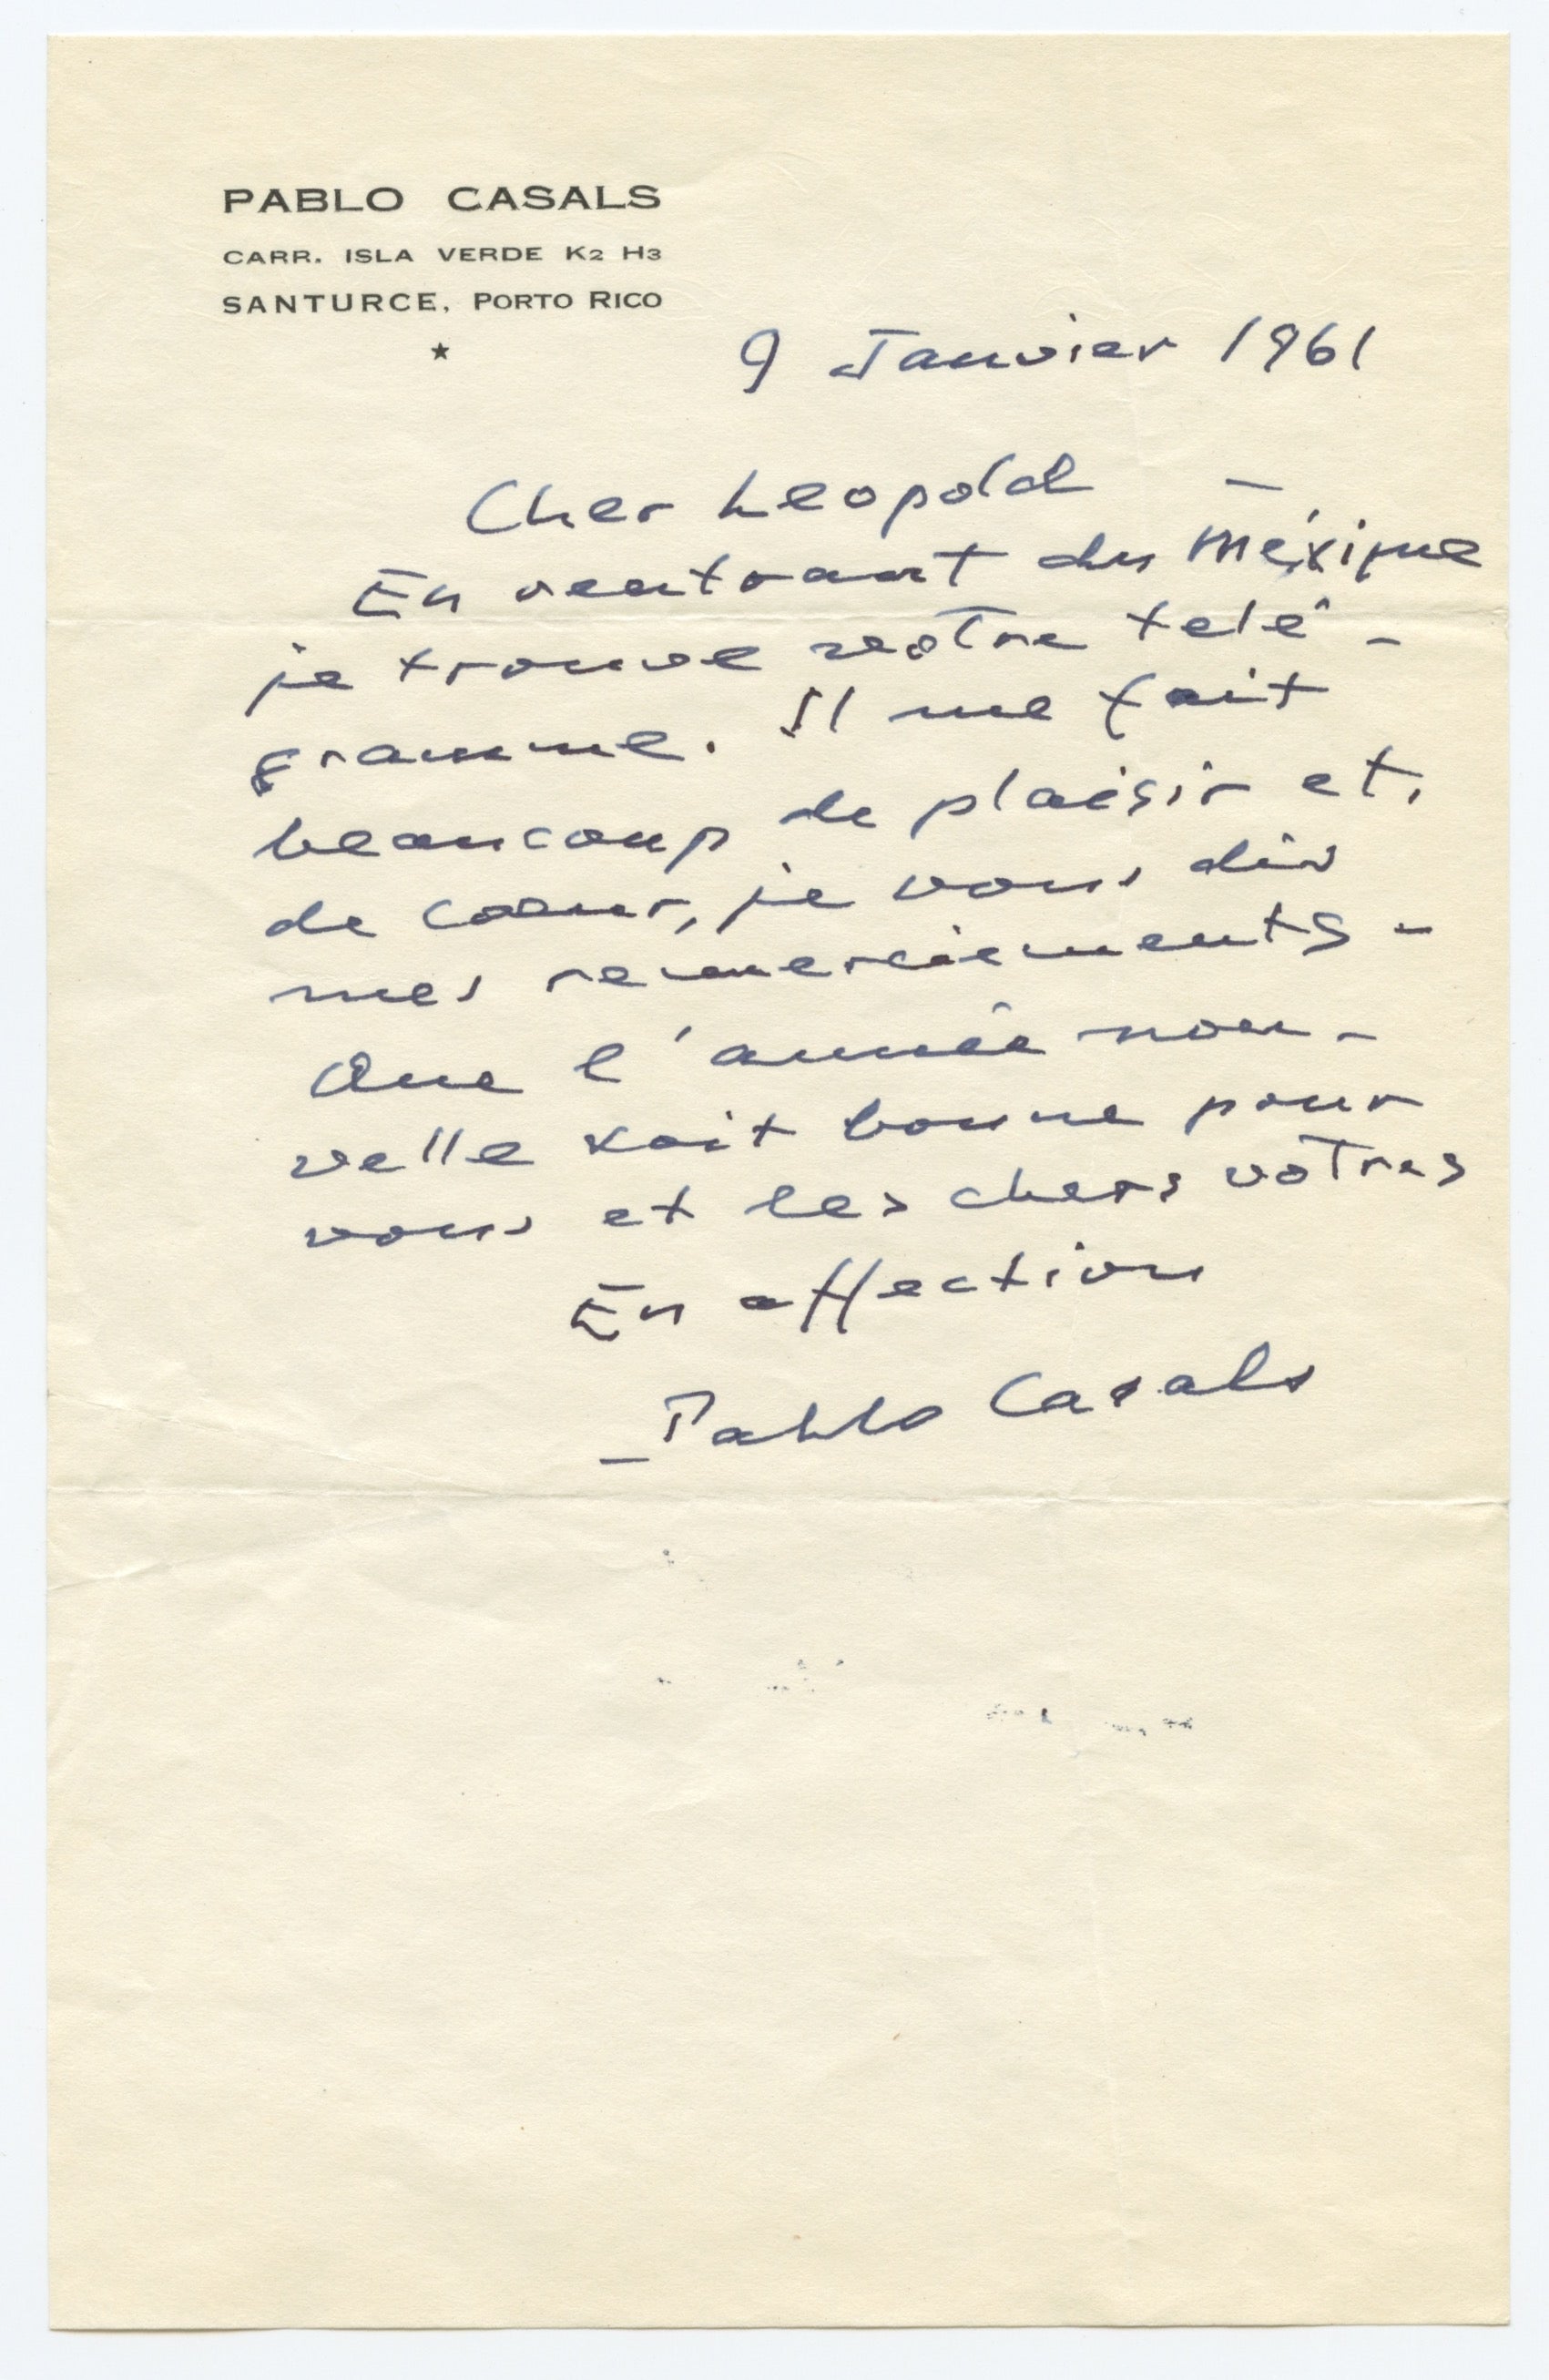 PABLO CASALS
CARR. ISLA VERDE K2 H3
SANTURCE, PORTO RICO
★
9 Janvier 1961
Cher Leopold –
En rentrant du Méxique
je trouve votre telé-
gramme. Il me fait
beaucoup de plaisir et,
de coeur, je vous dis
mes remerciements –
Que l'année nou-
velle soit bonne pour
vous et les chers vôtres
En affection
Pablo Casals